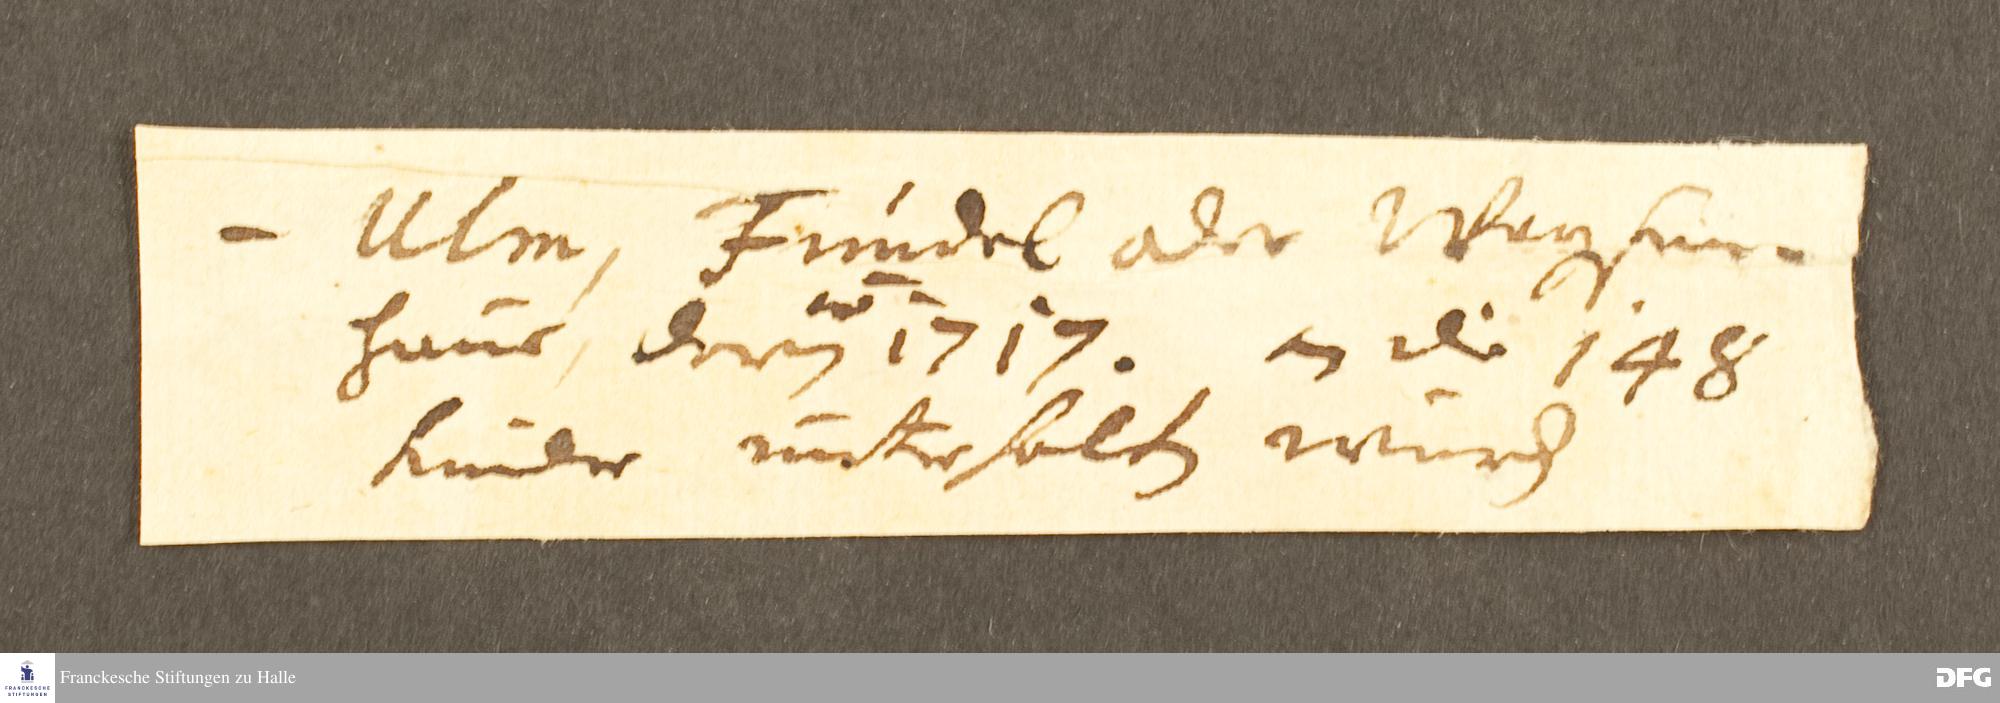 - Ulm, Findel oder Waysen-
haus, 1717. die 148
Kinder unterhalten
Franckesche Stiftungen zu Halle
FRANCKESCHE
STIFTUNGEN
DFG